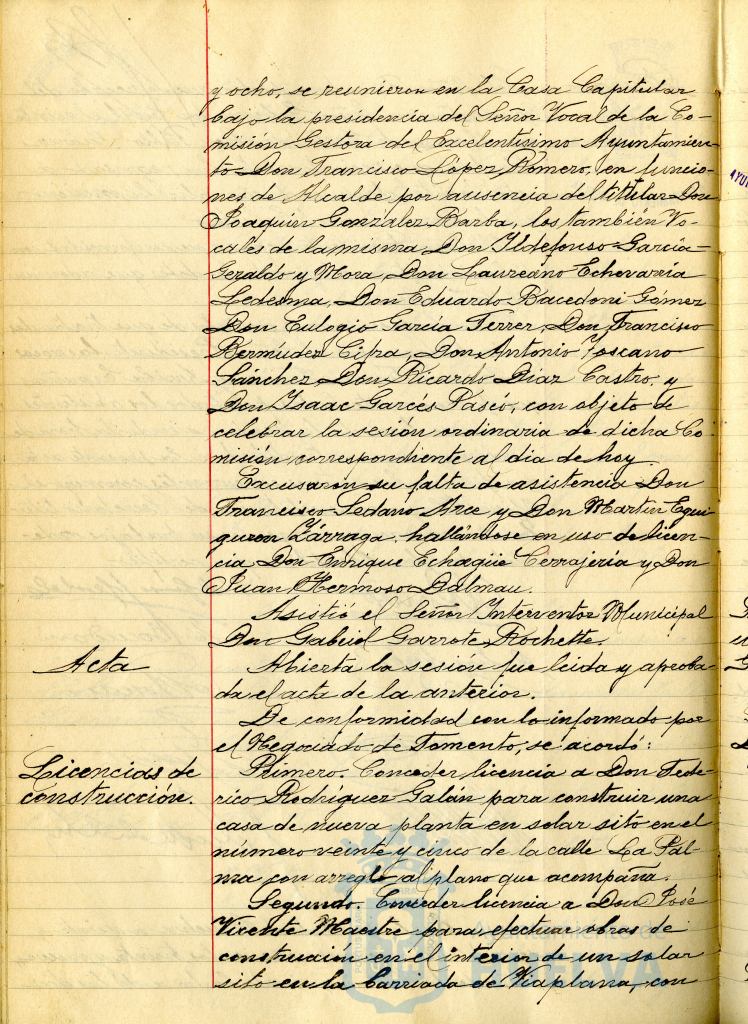 y ocho, se reunieron en la Casa Capitular
bajo la presidencia del Señor Vocal de la Co-
misión Gestora del Excelentísimo Ayuntamien-
to Don Francisco López Romero, en funcio-
nes de Alcalde por ausencia del titular Don
Joaquín González Barba, los también Vo-
cales de la misma, Don Ildefonso García-
Geraldo y Mora, Don Laureano Echevarría
Ledesma, Don Eduardo Bacedoni Gómez
Don Eulogio García Ferrer, Don Francisco
Bermúdez Cifra, Don Antonio Toscano
Sánchez, Don Ricardo Díaz Castro, y
Don Isaac Garcés Paseó, con objeto de
celebrar la sesión ordinaria de dicha Co-
misión correspondiente al día de hoy.
Excusaron su falta de asistencia Don
Francisco Sedano Arce y Don Martín Egui-
guren Zárraga, hallándose en uso de licen-
cia, Don Enrique Echagüe Cerrajería y Don
Juan Hermoso Dalmau.
Asistió el Señor Interventor Municipal
Don Gabriel Garrote Rochette.
Acta
Abierta la sesión fue leida y aproba-
da el acta de la anterior.
De conformidad con lo informado por
el Negociado de Fomento, se acordó:
Licencias de
construcción.
Primero. Conceder licencia a Don Fede-
rico Rodríguez Galán para construir una
casa de nueva planta en solar sito en el
número veinte y cinco de la calle La Pal-
ma con arreglo al plano que acompaña.
Segundo. Conceder licencia a Don José
Vicente Maestre para efectuar obras de
construcción en el interior de un solar
sito en la barriada de Viaplana, con